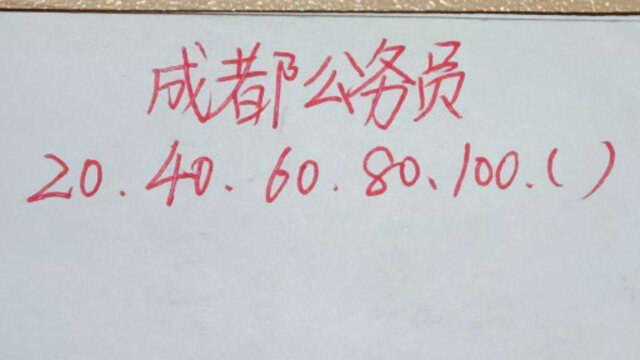 成都公务员
20.40.60.80、100.( )